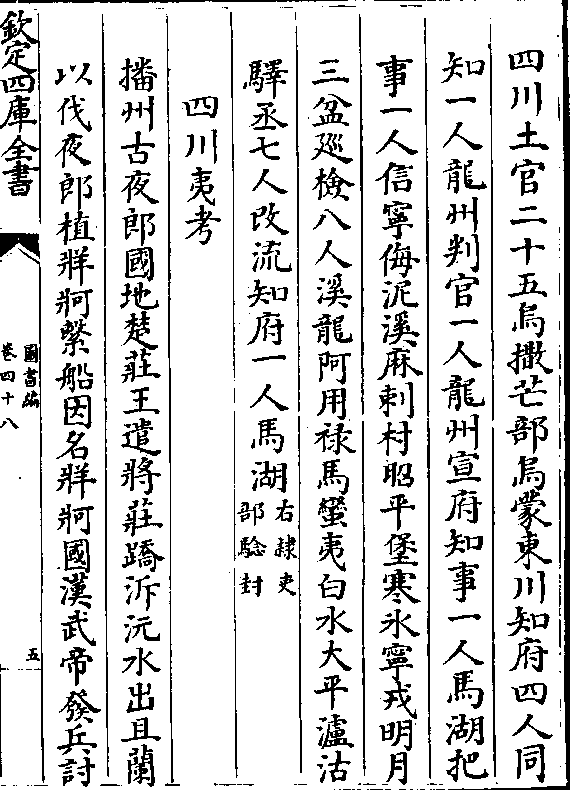 四川土官二十五烏撒芒部烏蒙東川知府四人同
知一人龍州判官一人龍州宣府知事一人馬湖把
事一人信寧侮泥溪麻剌村昭平堡寒氷寧戎明月
三盆廵檢八人溪龍阿用禄馬蠻夷白水大平瀘沽
驛丞七人改流知府一人馬湖右隸吏部驗封
四川夷考
播州古夜郎國地楚莊王遣將莊蹻泝沅水出且蘭
以伐夜郎植牂牁繫船因名牂牁國漢武帝發兵討
欽定四庫全書
圖書編
卷四十八
五